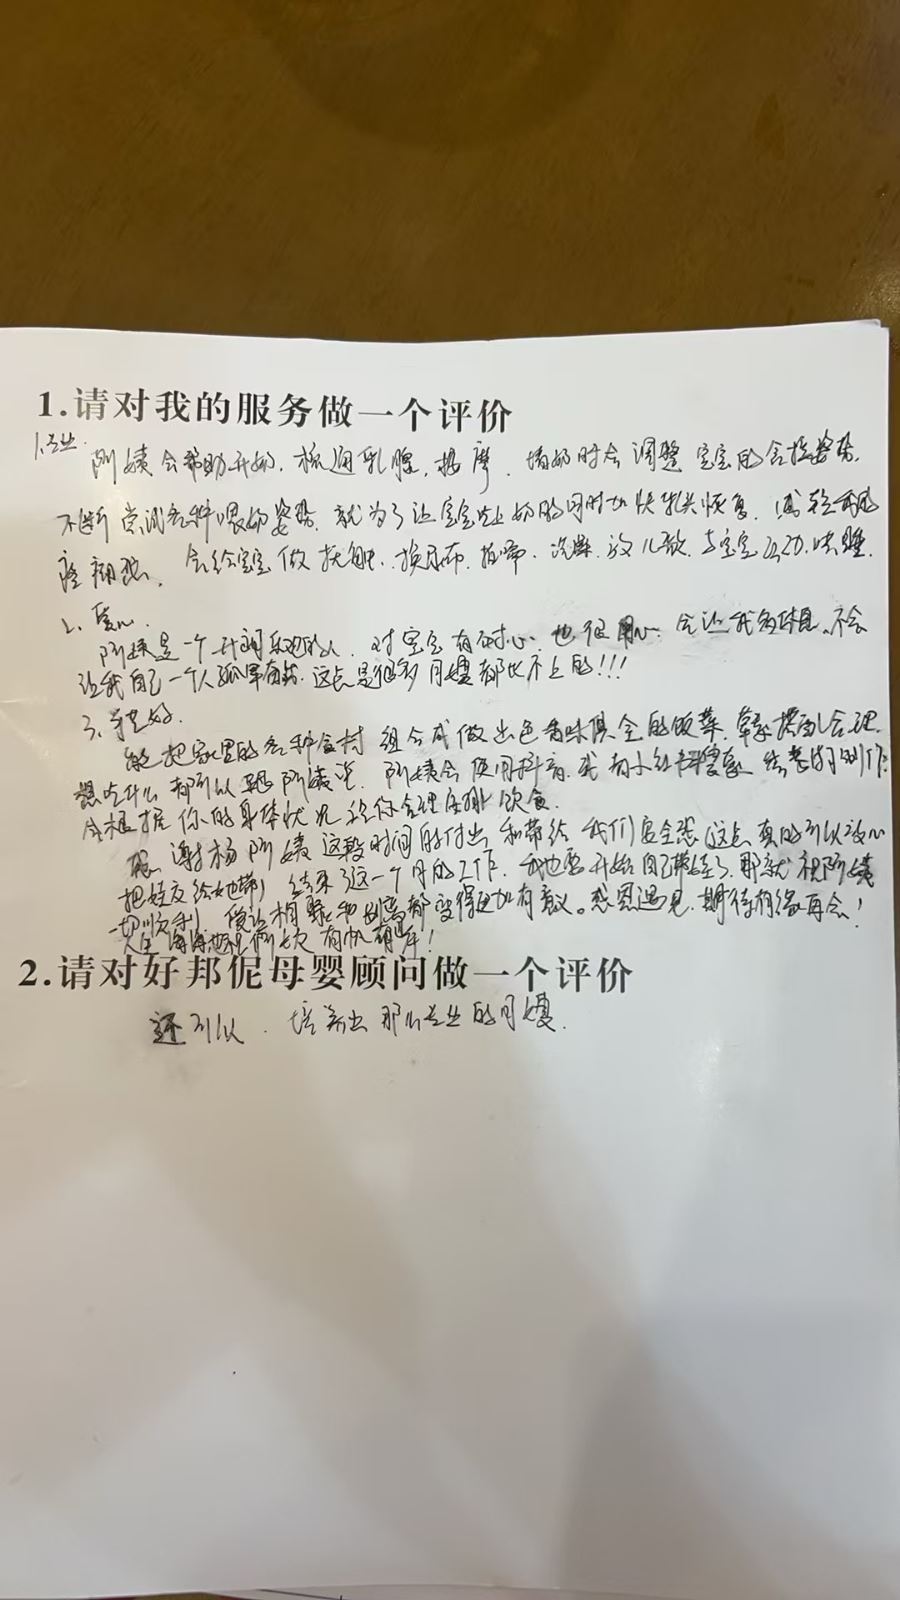 1.请对我的服务做一个评价
1.专业.
阿姨会帮助开奶,梳通乳腺,按摩,喂奶时会调整宝宝的含接姿势,
不断尝试各种喂奶姿势,就为了让宝宝吃上奶的同时加快乳头恢复,减轻
会给宝宝做抚触,换尿布,拍嗝,洗澡,放儿歌,与宝宝互动,哄睡.
2、爱心.
阿姨是一个开朗乐观的人,对宝宝有耐心也很用心.会让我多休息,不会
让我自己一个人孤军奋战,这点是很多月嫂都比不上的!!!
3、手艺好.
能把家里的各种食材组合成做出色香味俱全的饭菜,荤素搭配合理.
想吃什么都可以跟阿姨说,阿姨会使用抖音,或者小红书
会根据你的身体状况给你合理安排饮食.
感谢杨阿姨这段时间的付出和带给我们安全感这点真的可以放心
把娃交给她带,结束了这一个月的工作,我也要开始自己带娃了,那就祝阿姨
一切顺利,使得相聚和别离都变得更加有意义。感恩遇见,期待有缘再会!
2.请对好邦伲母婴顾问做一个评价
还可以,培养出那么专业的月嫂.